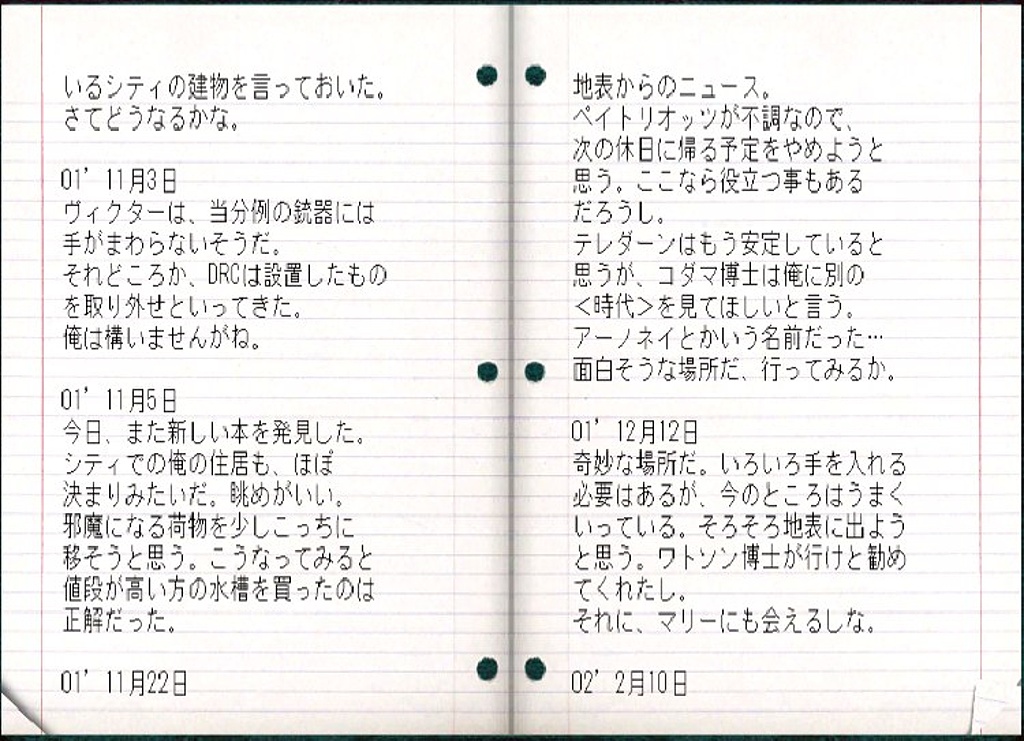 いるシティの建物を言っておいた。
さてどうなるかな。
01’ 11月3日
ヴィクターは、当分例の銃器には
手がまわらないそうだ。
それどころか、DRCは設置したもの
を取り外せといってきた。
俺は構いませんがね。
01’ 11月5日
今日、また新しい本を発見した。
シティでの俺の住居も、ほぼ
決まりみたいだ。眺めがいい。
邪魔になる荷物を少しこっちに
移そうと思う。こうなってみると
値段が高い方の水槽を買ったのは
正解だった。
01’ 11月22日
地表からのニュース。
ペイトリオッツが不調なので、
次の休日に帰る予定をやめようと
思う。ここなら役立つ事もある
だろうし。
テレダーンはもう安定していると
思うが、コダマ博士は俺に別の
<時代>を見てほしいと言う。
アーノネイとかいう名前だった…
面白そうな場所だ、行ってみるか。
01’ 12月12日
奇妙な場所だ。いろいろ手を入れる
必要はあるが、今のところはうまく
いっている。そろそろ地表に出よう
と思う。ワトソン博士が行けと勧め
てくれたし。
それに、マリーにも会えるしな。
02’ 2月10日